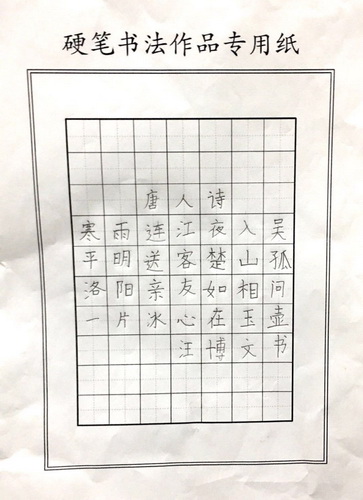 硬笔书法作品专用纸
唐人诗
寒雨连江夜入吴
平明送客楚山孤
洛阳亲友如相问
一片冰心在玉壶
汪博文书